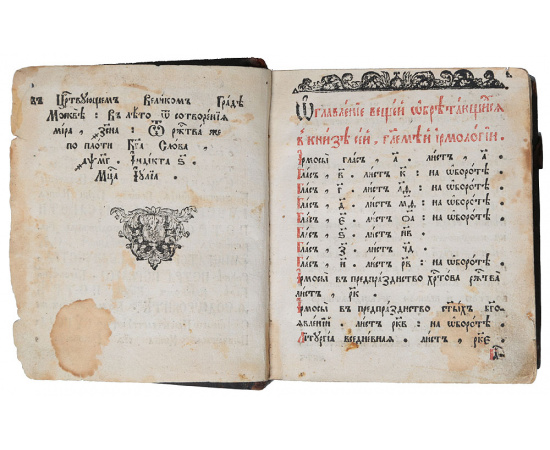 въ Црⷭ҇твующемъ Великомъ Градѣ
Москвѣ : Въ лѣто ѿ сотворенїѧ
мїра , ҂зс҃на : Ѿ рж҃тва же
по плоти Бг҃а Слова ,
Індїкта ѕ҃
Мцⷭ҇а Іулїа .
Ѡглавленїе вещей ѡбрѣтающихсѧ
в книзѣ сей , гл҃емѣй ірмологїи .
Ірмосы гласъ , а҃ . листъ , а҃ .
Гласъ , в҃ . листъ к҃ : на ѡборотѣ .
Гласъ , г҃ . листъ л҃ф : на ѡборотѣ .
Гласъ , д҃ . листъ м҃ф : на ѡборотѣ .
Гласъ , є҃ . листъ ѻ҃а : на ѡборотѣ .
Гласъ , ѕ҃ . листъ п҃в .
Гласъ , з҃ . листъ ч҃д .
Гласъ , и҃ . листъ р҃в : на ѡборотѣ .
Ірмосы въ предпразднство хрⷭ҇това рж҃тва
листъ , р҃к .
Ірмосы въ предпразднство ст҃ыхъ бг҃о
ѧвленїй . листъ рк҃в : на ѡборотѣ .
Літургїа вседневнаѧ . листъ , рк҃є .